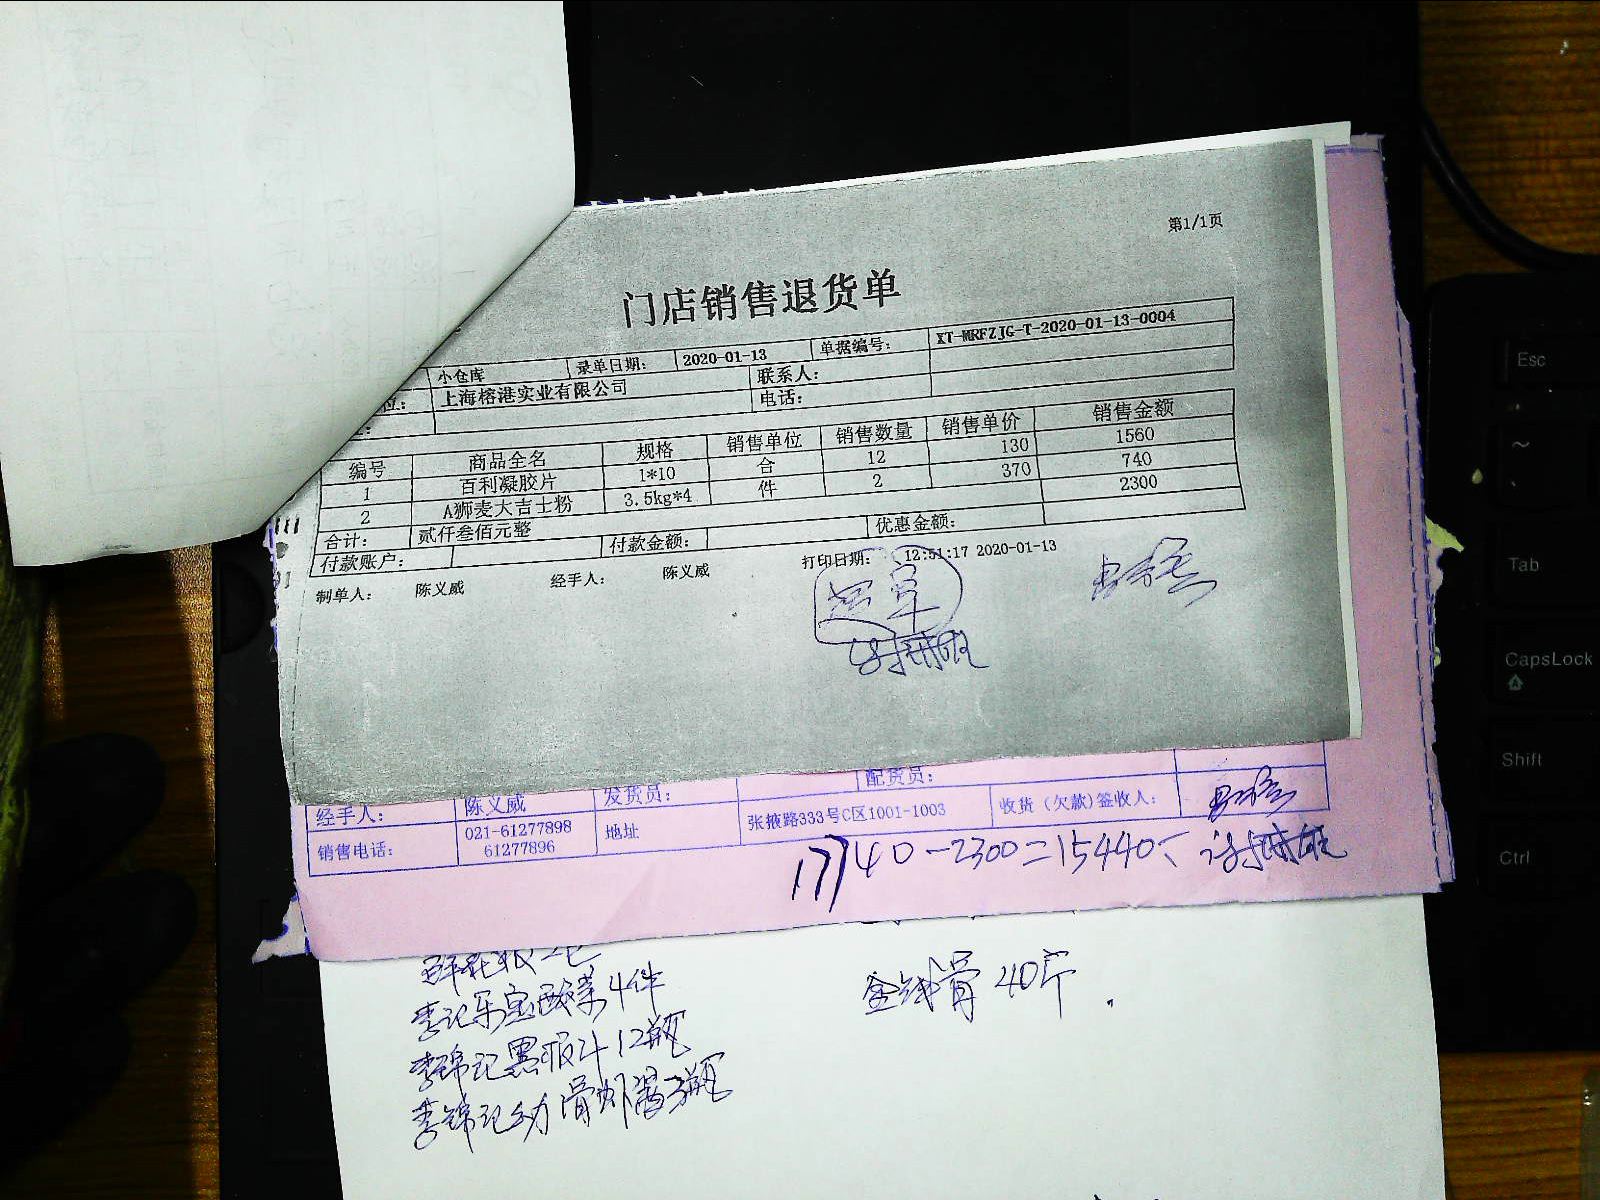 第1/1页
门店销售退货单
小仓库 录单日期： 2020-01-13 单据编号： XT-MRFZJG-T-2020-01-13-0004
位： 上海榕港实业有限公司 联系人：
电话：
编号 商品全名 规格 销售单位 销售数量 销售单价 销售金额
1 百利凝胶片 1*10 合 12 130 1560
2 A狮麦大吉士粉 3.5kg*4 件 2 370 740
合计： 贰仟叁佰元整 2300
付款账户： 付款金额： 优惠金额：
制单人： 陈义威 经手人： 陈义威 打印日期： 12:51:17 2020-01-13
配货员：
经手人： 陈义威 发货员：
销售电话： 021-61277898 地址 张掖路333号C区1001-1003 收货（欠款）签收人：
61277896
17740-2300=15440
李记乐宝酸菜4件
金钱骨40斤
李锦记黑椒汁12瓶
李锦记幼滑虾酱3瓶
Esc
~
Tab
CapsLock
A
Shift
Ctrl